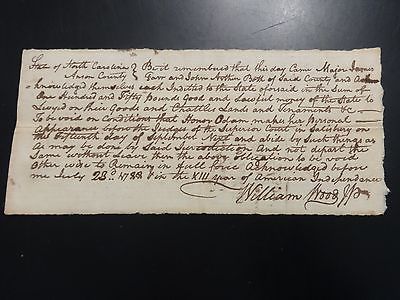 State of North Carolina } Be it remembered that this day Came Major James
Anson County } Farr and John Both of Said County and Ack
knowledged themselves each Indebted to the State aforesaid in the Sum of
One Hundred and Fifty pounds Good and Lawful money of the State to
be Levyed on their Goods and Chattles Lands and Tenaments &c
To be void on Conditions that Honor Odam make her personal
Appearance before the Judges of the Superior Court in Salisbury on
the fifteenth day of September Next and abide by Such things as
as may be done by Said Jurisdiction And not depart the
Same without Leave then the above Obligation to be void
Other wise to Remain in full force Acknowledged before
me July 23d 1788 & in the XIII year of American Independance
William Wood JP